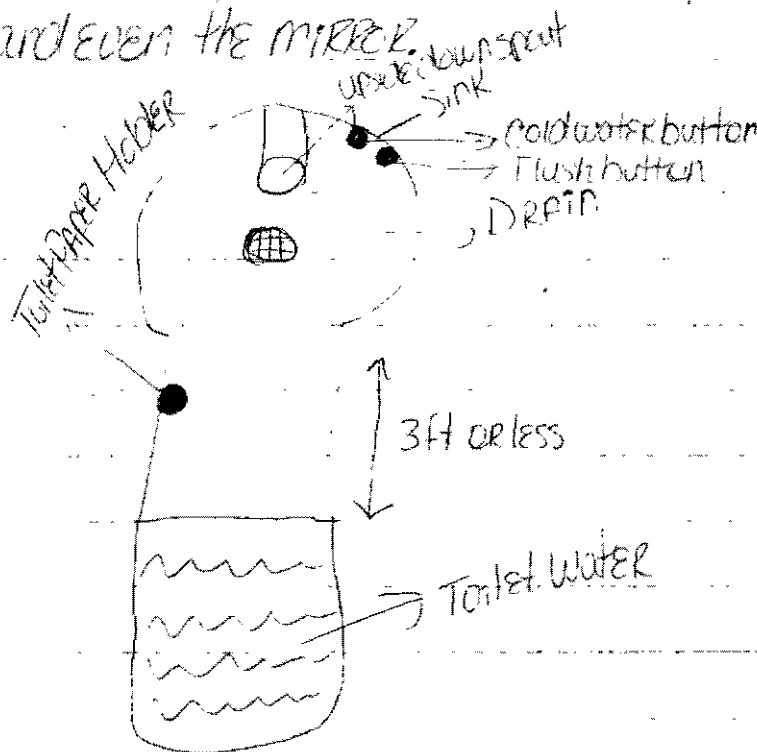 and even the MIRROR.
upside down spout
Sink
Cold water button
Flush button
DRAIN
Toilet PAPER HOLDER
3ft OR less
Toilet WatER